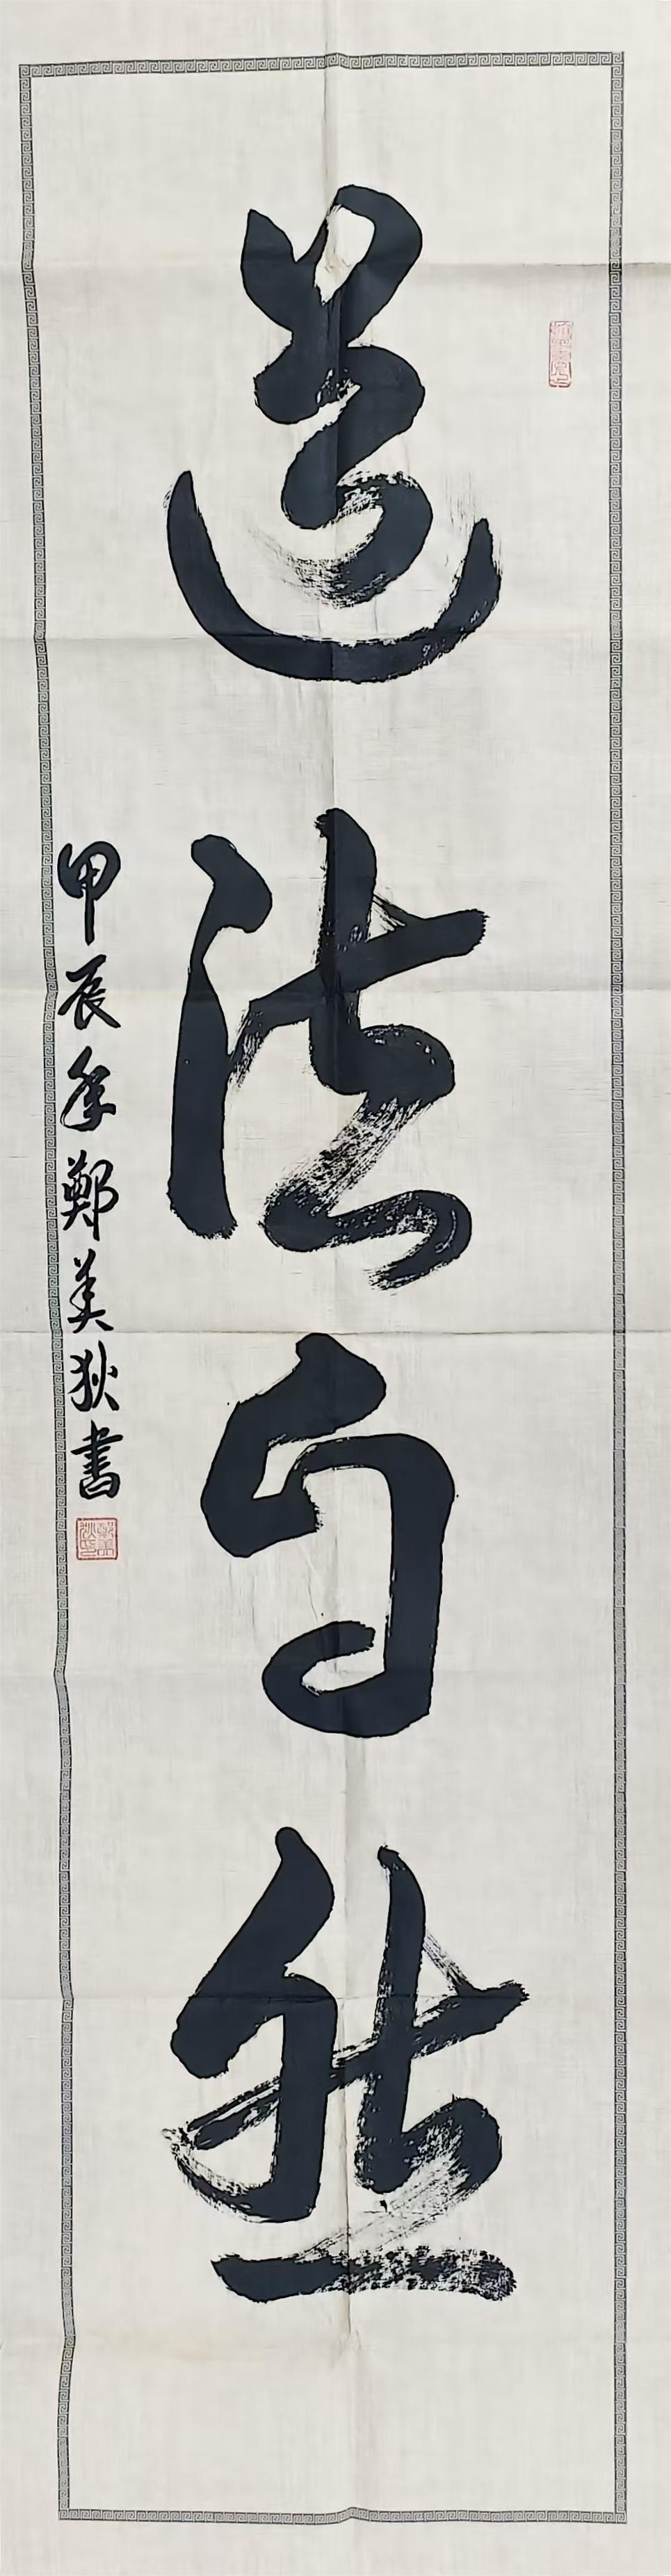 道法自然
甲辰年鄭美狄書